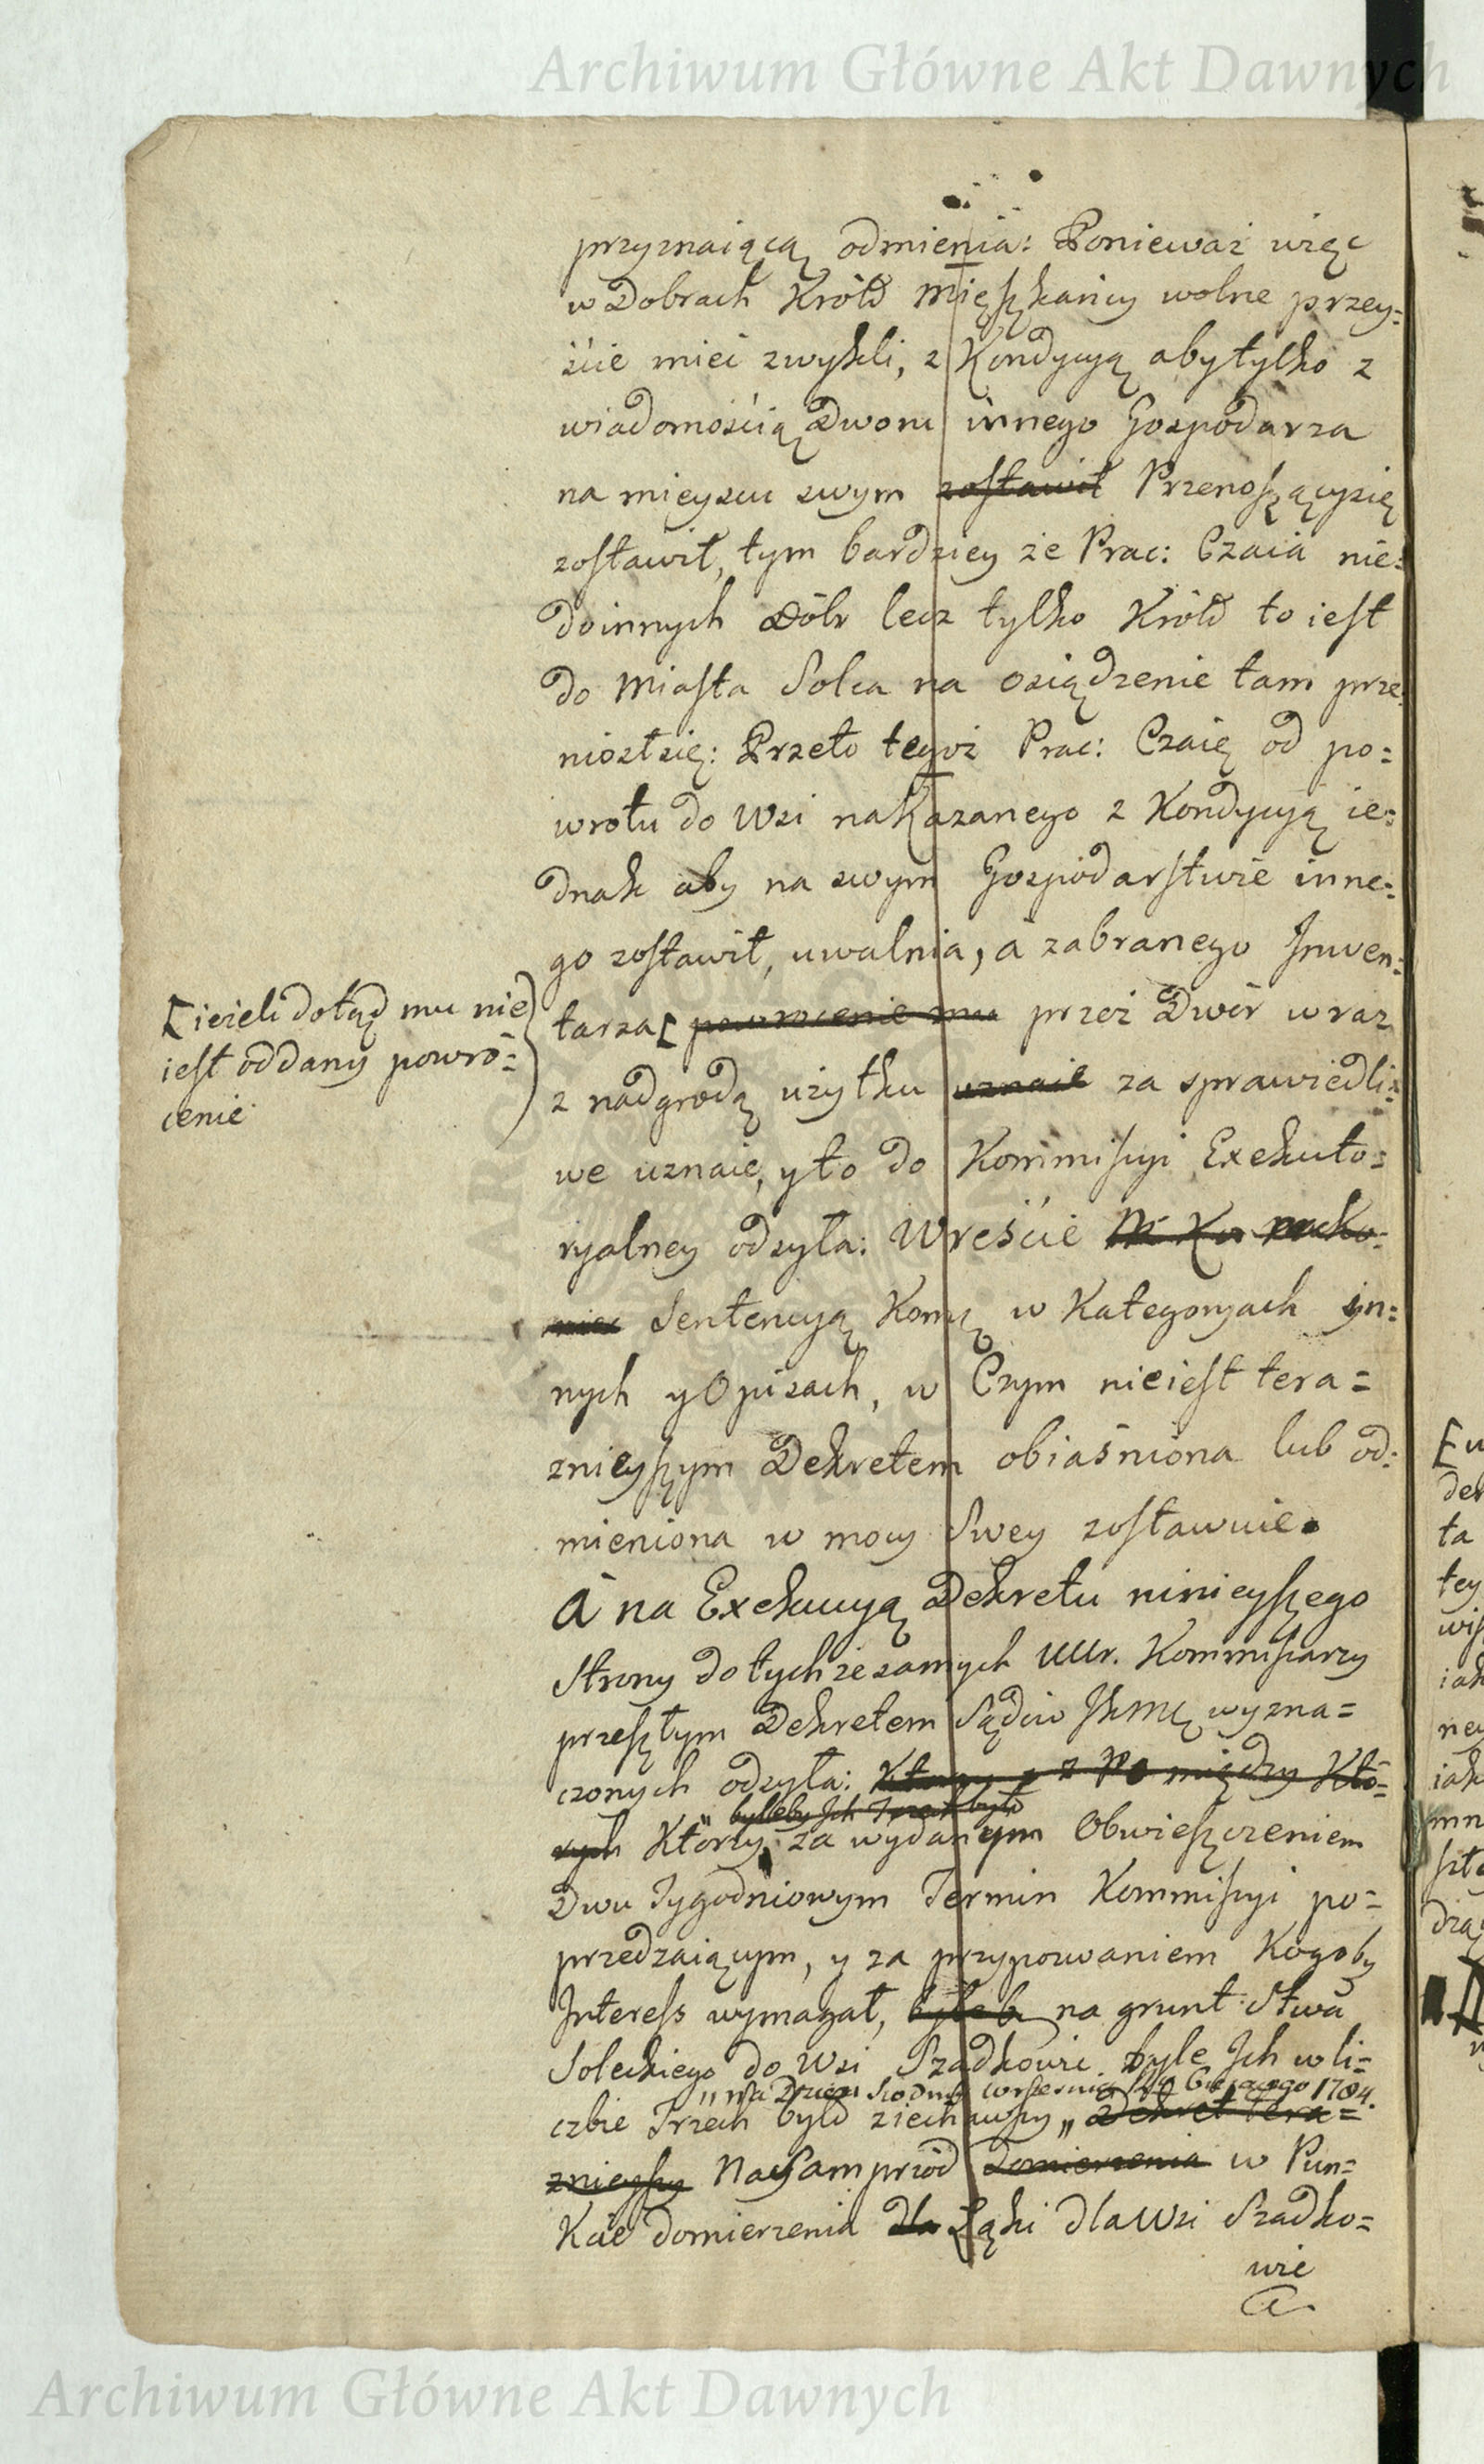 Archiwum Główne Akt Dawnych
przyznaiącą odmienia: Ponieważ więc
w Dobrach Królŏ Mięszkańcy wolne przey=
ście mieć zwykli, z Kondycyą aby tylko z
wiadomością Dworu innego Gospodarza
na mieyscu swym zostawił Przenoszącysię
zostawił, tym bardziey że Prac: Czaia nie=
do innych Dóbr lecz tylko Królŏ to iest
do Miasta Solca na osiądzenie tam prze=
niosł się: Przeto tegoż Prac: Czaię od po=
wrotu do Wsi nakazanego z Kondycyą ie=
dnak aby na swym Gospodarstwie inne=
go zostawił, uwalnia, a zabranego Inwen=
tarza [ powrocenie mu przez Dwór wraz
[ ieżeli dotąd mu nie
iest oddany powró=
cenie
z nadgrodą użytku uznaie za sprawiedli=
we uznaie, y to do Kommissyi Exekuto=
ryalney odsyła: Wreście
Sentencyą Komŋ w Kategoryach in=
nych y Opisach, w Czym nieiest tera=
znieyszym Dekretem obiaśniona lub od=
mieniona w mocy Swey zostawuie.
A na Exekucyą Dekretu ninieyszego
Strony do tychże samych UUr. Kommissarzy
przeszłym Dekretem Sądów JKMŋ wyzna=
czonych odsyła: Którzy z Po między Któ=
byleby Ich Trzech było
rych Którzy za wydanym Obwieszczeniem
Dwu Tygodniowym Termin Kommissyi po=
przedzaiącym, y za przypozwaniem Kogoby
Interess wymagał, byleby na grunt Stwa
Soleckiego do Wsi Szadkowic byle Ich w li=
„ na Dzień Siodmy Września Rŏ bieżącego 1784.
czbie Trzech było ziechawszy „ Dekret tera=
znieyszy Naysamprzód domierzenia w Pun=
Kcie domierzenia dla Łąki dla Wsi Szadko=
wic
Archiwum Główne Akt Dawnych